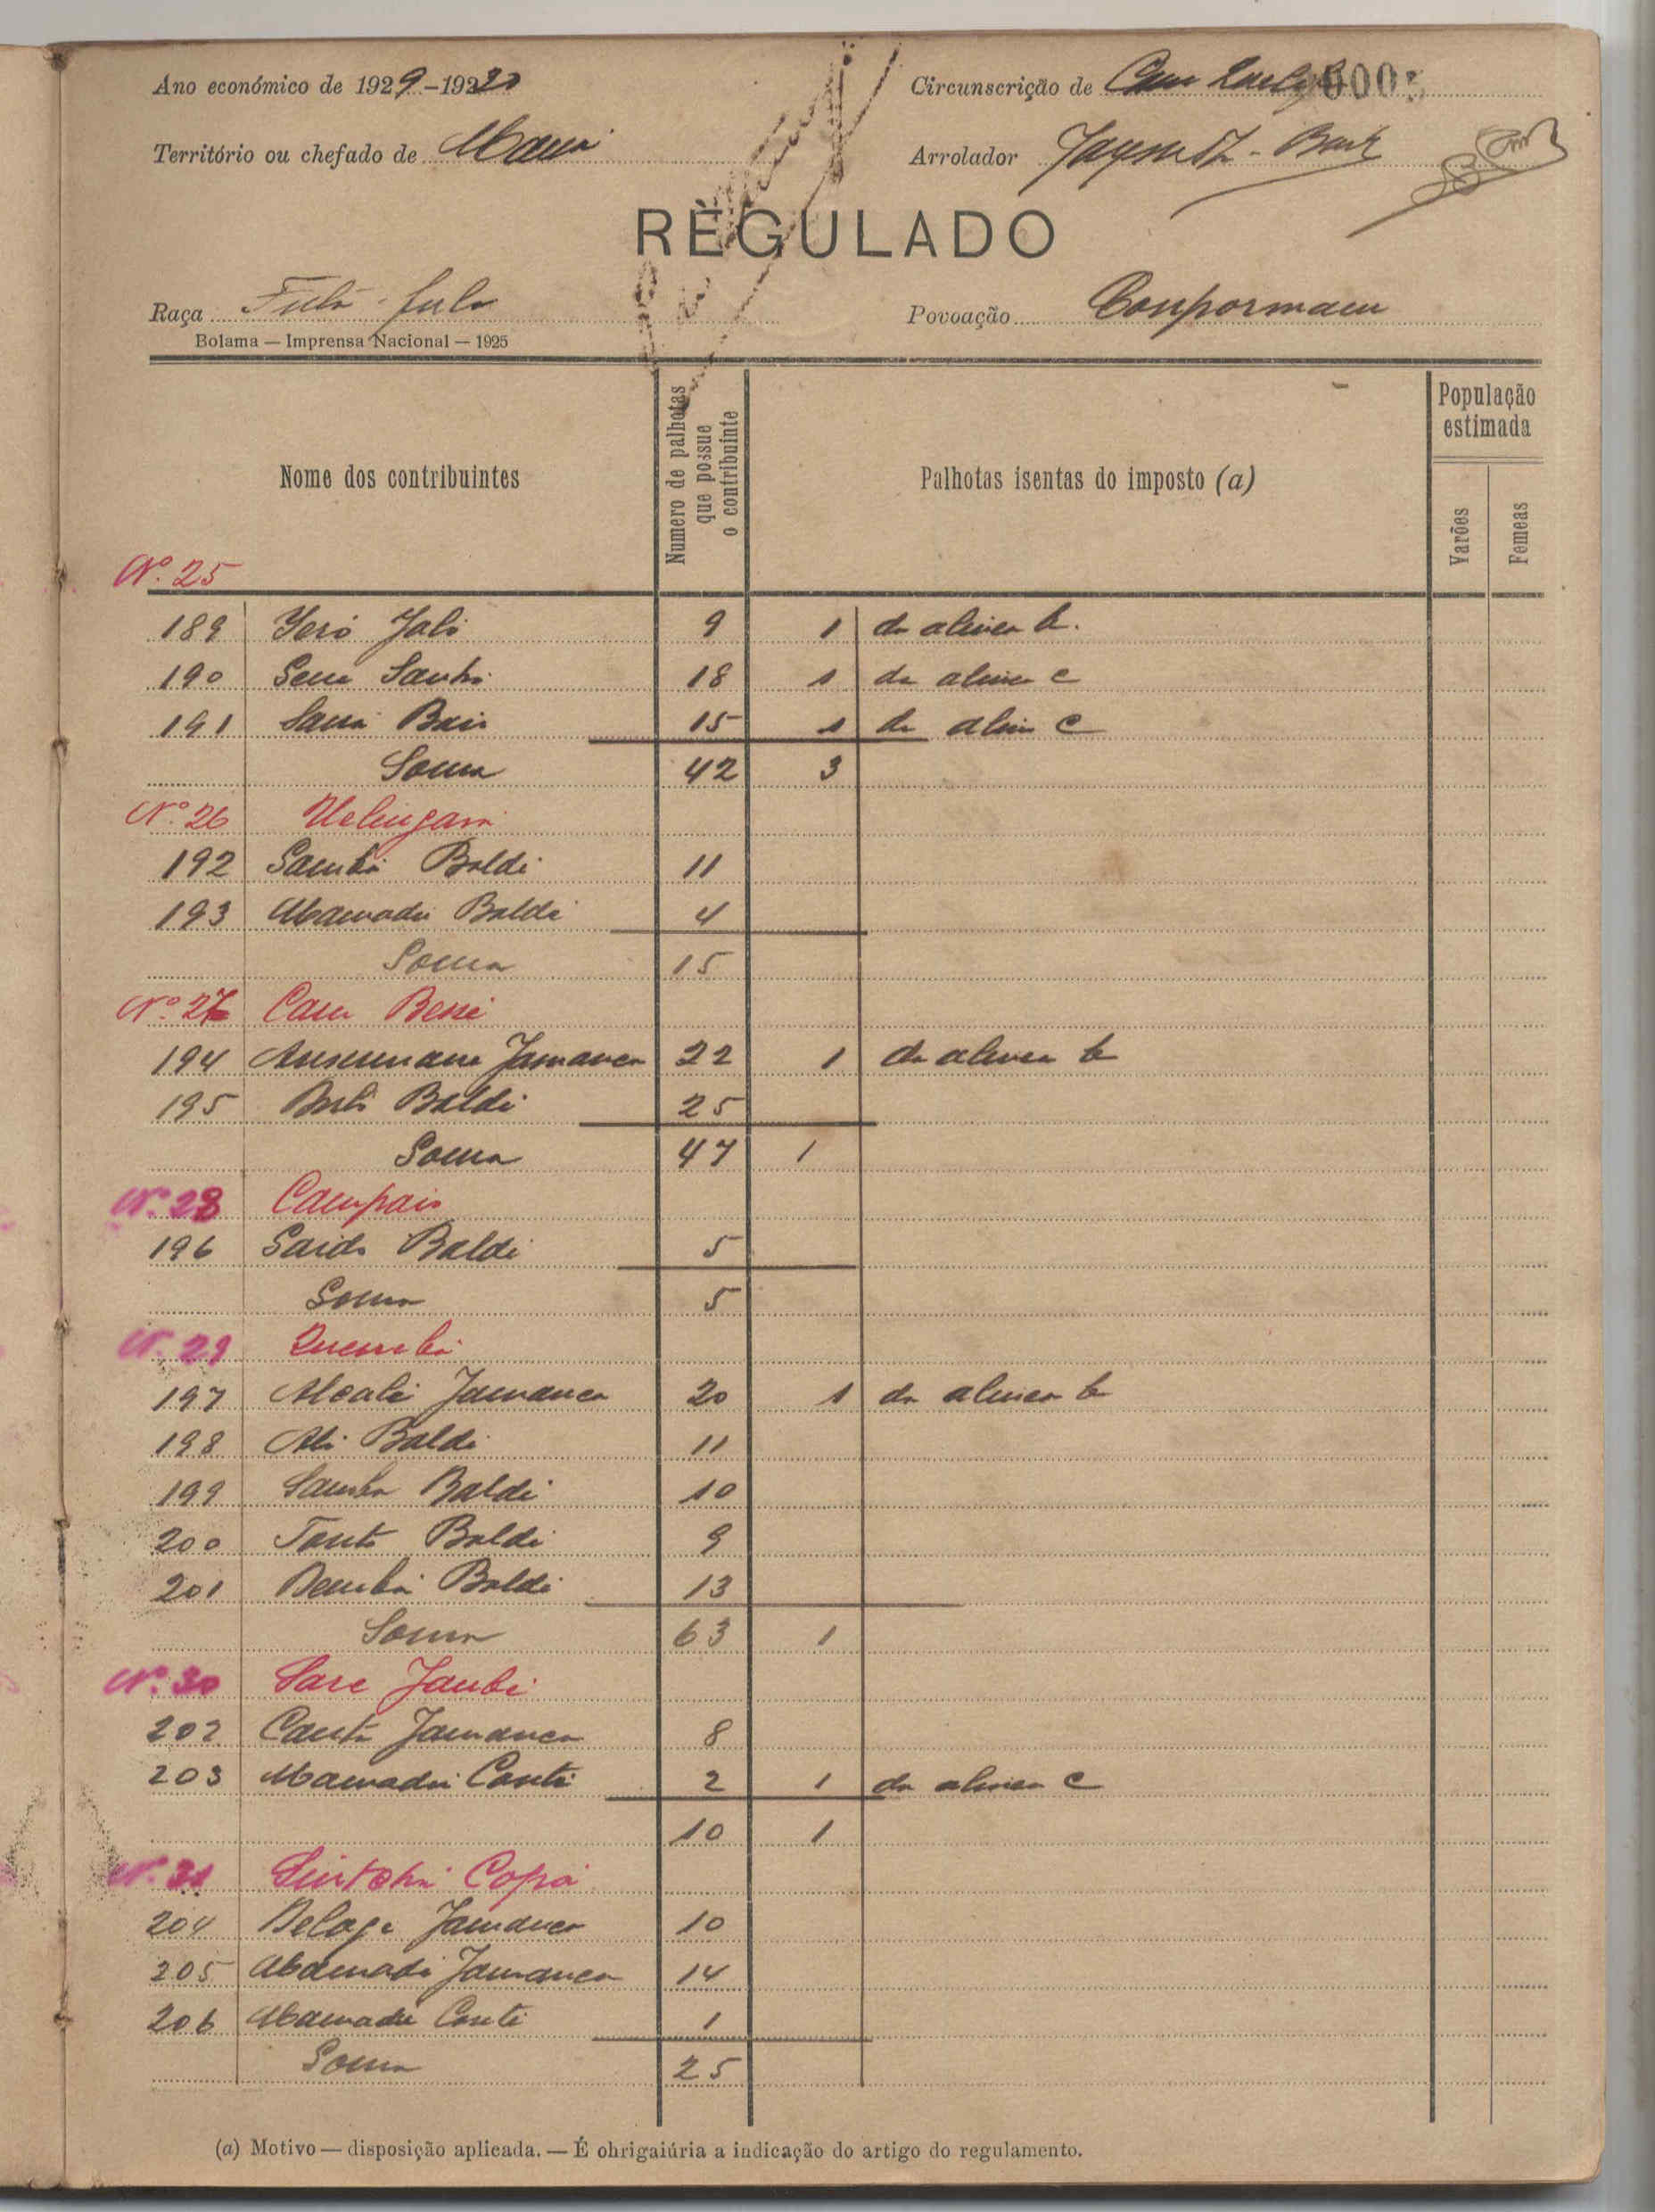 Ano económico de 1929-1930
Circunscrição de 0005
Território ou chefado de
Arrolador
REGULADO
Raça Fula-fula
Povoação Conpormaem
Bolama — Imprensa Nacional — 1925
Nome dos contribuintes
Numero de palhotas que possue o contribuinte
Palhotas isentas do imposto (a)
População estimada
Varões
Femeas
Nº 25
189 Jeró Jaló 9 1 da alinea b.
190 18 1 da alinea c
191 15 1 da alin c
Soma 42 3
Nº 26
192 Samba Baldé 11
193 Mamadú Baldé 4
Soma 15
Nº 27 Cam Bessé
194 Ansumane Jamanca 22 1 da alinea b
195 Baldé 25
Soma 47 1
Nº 28 Campais
196 Saido Baldé 5
Soma 5
Nº 29 Quembá
197 Jamanca 20 1 da alinea b
198 Ali Baldé 11
199 Samba Baldé 10
200 Baldé 9
201 Demba Baldé 13
Soma 63 1
Nº 30 Sare
202 Jamanca 8
203 Mamadú Conté 2 1 da alinea c
10 1
Nº 31 Copá
204 Jamanca 10
205 Mamadi Jamanca 14
206 Mamadú Conté 1
Soma 25
(a) Motivo — disposição aplicada. — É ohrigaiúria a indicação do artigo do regulamento.